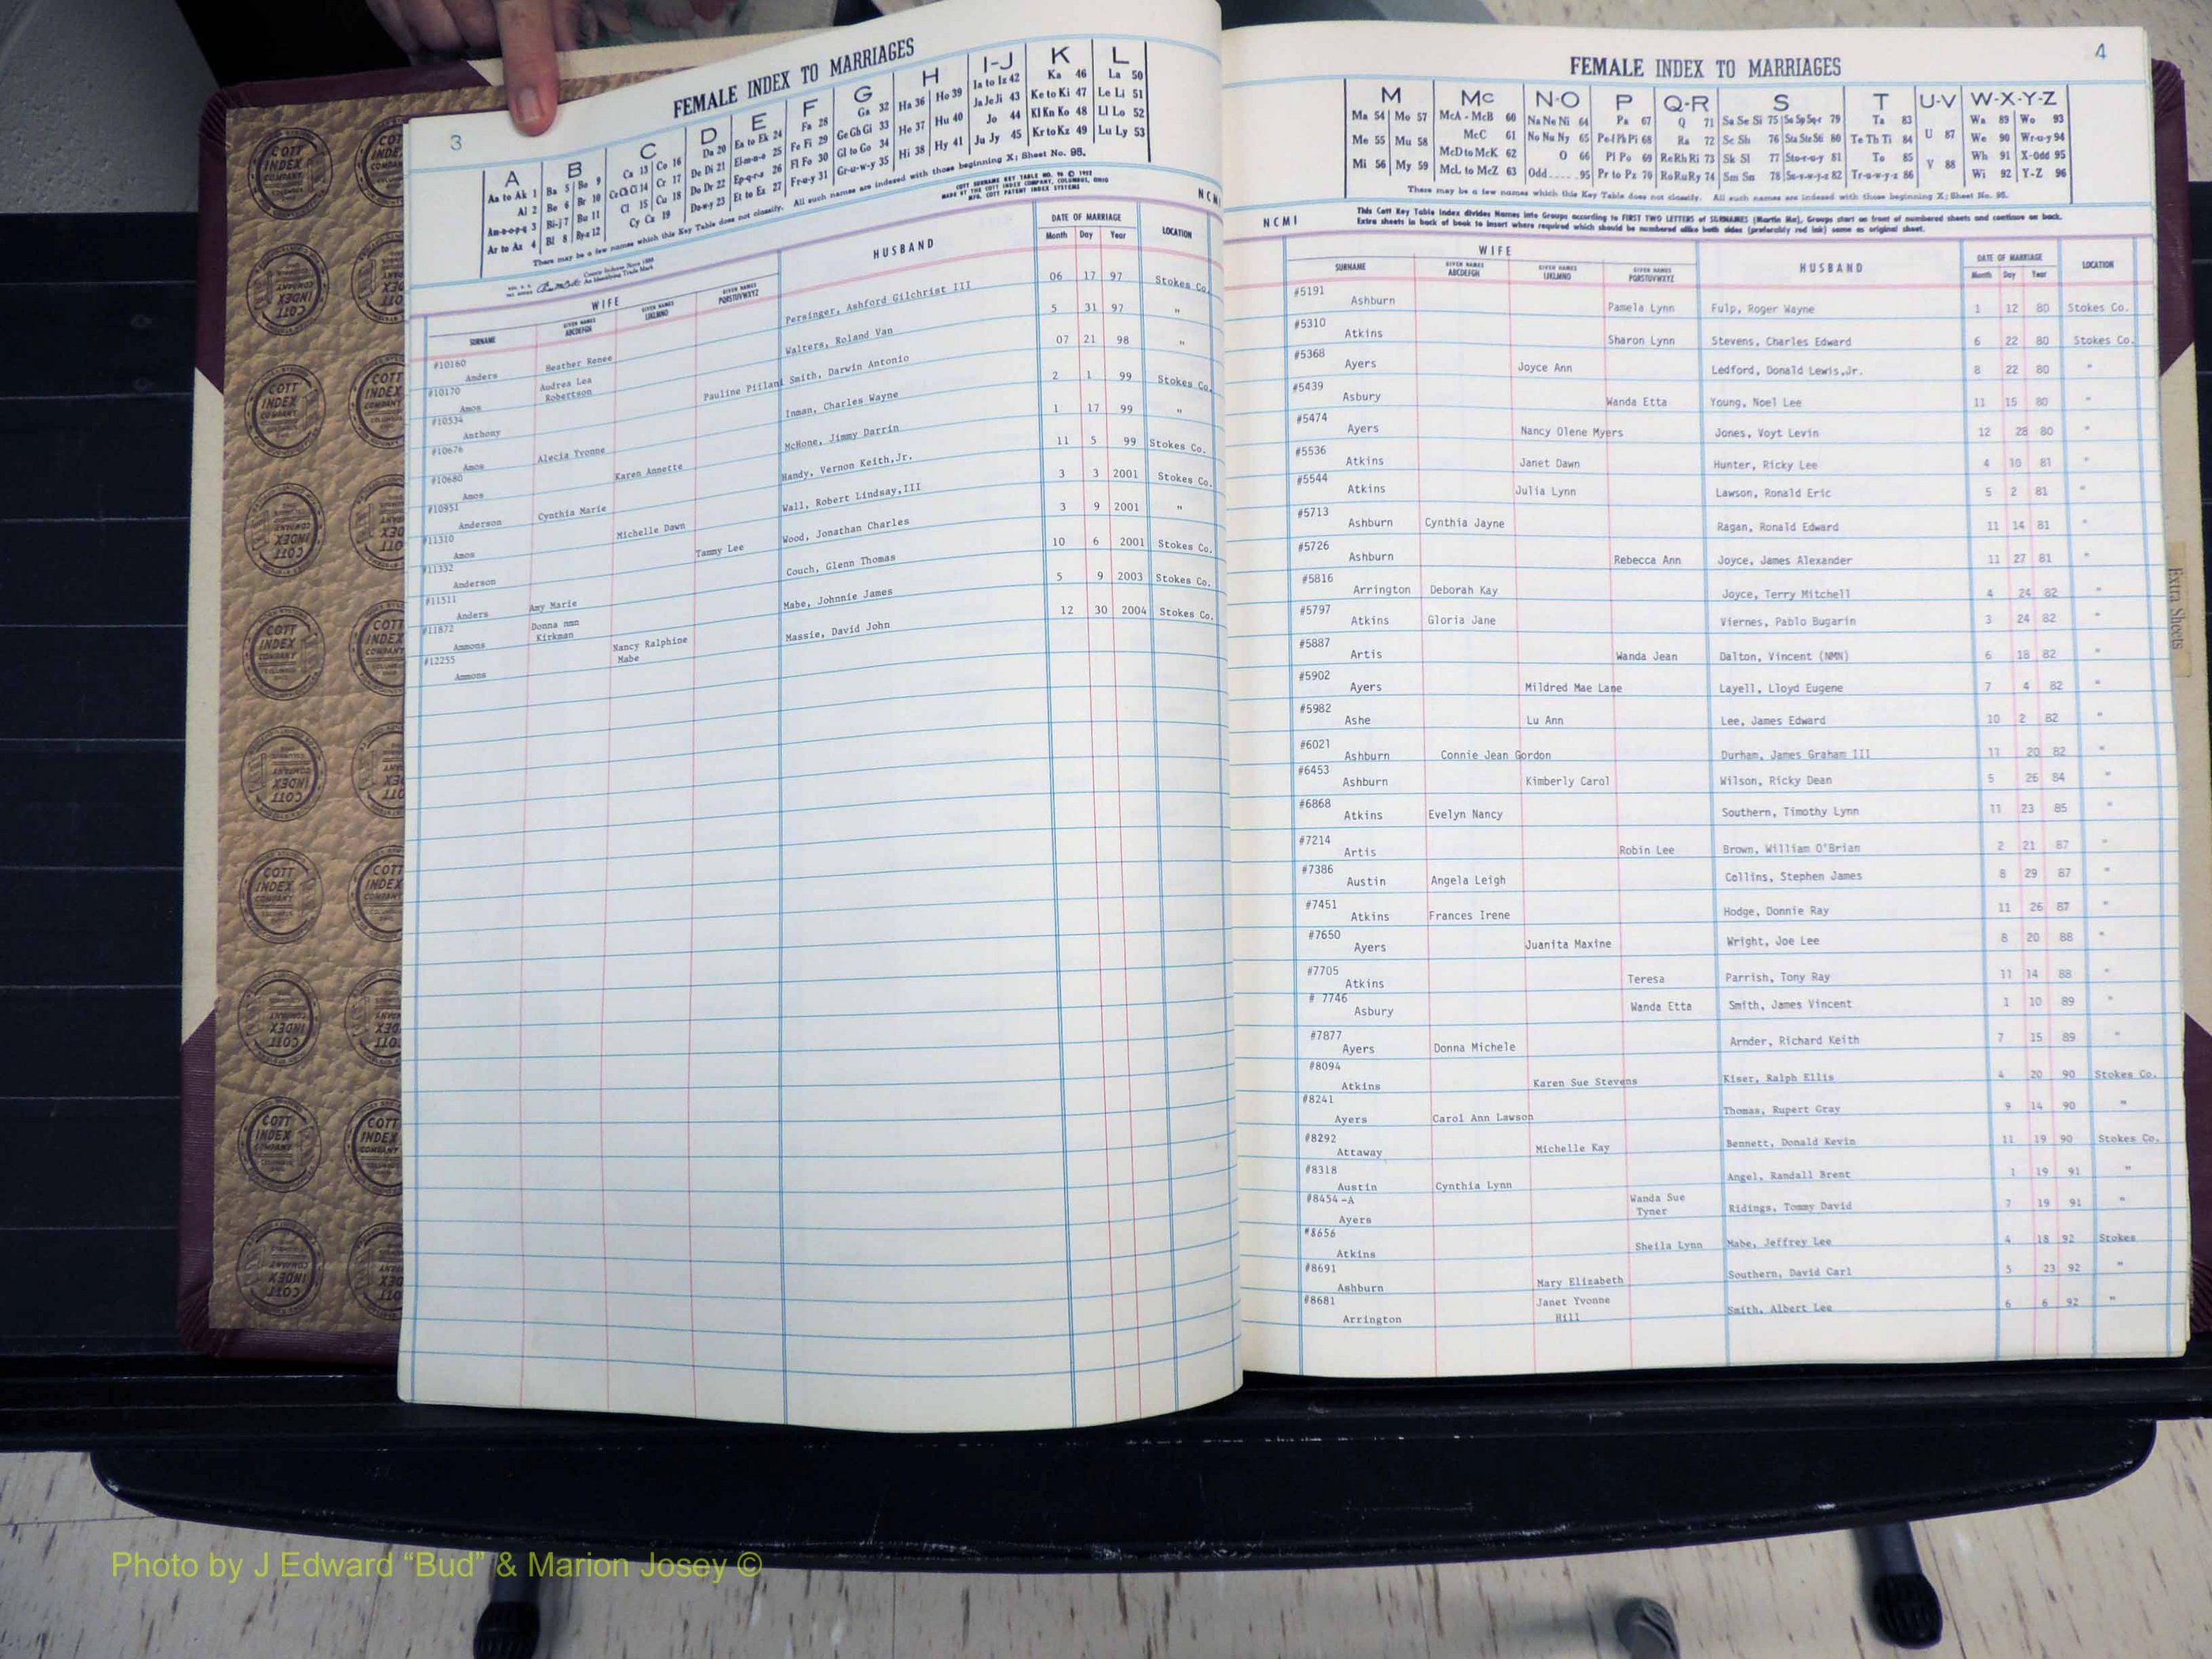 3
FEMALE INDEX TO MARRIAGES
A B C D E F G H I-J K L
Aa to Ak 1 Ba 5 Bo 9 Ca 13 Co 16 Da 20 Ea to Ek 24 Fa 28 Ga 32 Ha 36 Ho 39 Ia to Iz 42 Ka 46 La 50
Al 2 Be 6 Br 10 CeChCi 14 Cr 17 De Di 21 El-m-n-o 25 Fe Fi 29 GeGhGi 33 He 37 Hu 40 JaJeJi 43 Ke to Ki 47 Le Li 51
Am-n-o-p-q 3 Bi-j 7 Bu 11 Cl 15 Cu 18 Do Dr 22 Ep-q-r-s 26 Fl Fo 30 Gl to Go 34 Hi 38 Hy 41 Jo 44 Kl Kn Ko 48 Ll Lo 52
Ar to Az 4 Bl 8 By-z 12 Cy Cz 19 Du-w-y 23 Et to Ez 27 Fr-u-y 31 Gr-u-w-y 35 Ju Jy 45 Kr to Kz 49 Lu Ly 53
There may be a few names which this Key Table does not classify. All such names are indexed with those beginning X; Sheet No. 95.
COTT SURNAME KEY TABLE NO. 96 © 1952
MADE BY THE COTT INDEX COMPANY, COLUMBUS, OHIO
MFG. COTT PATENT INDEX SYSTEMS
NCMI
WIFE HUSBAND DATE OF MARRIAGE LOCATION
SURNAME GIVEN NAMES ABCDEFGH GIVEN NAMES IJKLMNO GIVEN NAMES PQRSTUVWXYZ Month Day Year
#10160 Anders Heather Renee Persinger, Ashford Gilchrist III 06 17 97 Stokes Co.
#10170 Amos Audrea Lea Robertson Walters, Roland Van 5 31 97 "
#10534 Anthony Pauline Piilani Smith, Darwin Antonio 07 21 98 "
#10676 Amos Alecia Yvonne Inman, Charles Wayne 2 1 99 Stokes Co.
#10680 Amos Karen Annette McHone, Jimmy Darrin 1 17 99 "
#10951 Anderson Cynthia Marie Handy, Vernon Keith,Jr. 11 5 99 Stokes Co.
#11310 Amos Michelle Dawn Wall, Robert Lindsay,III 3 3 2001 Stokes Co.
#11332 Anderson Tammy Lee Wood, Jonathan Charles 3 9 2001 "
#11511 Anders Amy Marie Couch, Glenn Thomas 10 6 2001 Stokes Co.
#11872 Ammons Donna nmn Kirkman Mabe, Johnnie James 5 9 2003 Stokes Co.
#12255 Ammons Nancy Ralphine Mabe Massie, David John 12 30 2004 Stokes Co.
4
FEMALE INDEX TO MARRIAGES
M Mc N-O P Q-R S T U-V W-X-Y-Z
Ma 54 Mo 57 McA - McB 60 Na Ne Ni 64 Pa 67 Q 71 Sa Se Si 75 So Sp Sq-r 79 Ta 83 U 87 Wa 89 Wo 93
Me 55 Mu 58 McC 61 No Nu Ny 65 Pe-f Ph Pi 68 Ra 72 Sc Sh 76 Sta Ste Sti 80 Te Th Ti 84 We 90 Wr-u-y 94
Mi 56 My 59 McD to McK 62 O 66 Pl Po 69 Re Rh Ri 73 Sk Sl 77 Sto-r-u-y 81 To 85 V 88 Wh 91 X-Odd 95
McL to McZ 63 Odd.....95 Pr to Pz 70 Ro Ru Ry 74 Sm Sn 78 Su-v-w-y-z 82 Tr-u-w-y-z 86 Wi 92 Y-Z 96
There may be a few names which this Key Table does not classify. All such names are indexed with those beginning X; Sheet No. 95.
NCMI This Cott Key Table Index divides Names into Groups according to FIRST TWO LETTERS of SURNAMES (Martin Ma), Groups start on front of numbered sheets and continue on back.
Extra sheets in back of book to insert where required which should be numbered alike both sides (preferably red ink) same as original sheet.
WIFE HUSBAND DATE OF MARRIAGE LOCATION
SURNAME GIVEN NAMES ABCDEFGH GIVEN NAMES IJKLMNO GIVEN NAMES PQRSTUVWXYZ Month Day Year
#5191 Ashburn Pamela Lynn Fulp, Roger Wayne 1 12 80 Stokes Co.
#5310 Atkins Sharon Lynn Stevens, Charles Edward 6 22 80 Stokes Co.
#5368 Ayers Joyce Ann Ledford, Donald Lewis,Jr. 8 22 80 "
#5439 Asbury Wanda Etta Young, Noel Lee 11 15 80 "
#5474 Ayers Nancy Olene Myers Jones, Voyt Levin 12 28 80 "
#5536 Atkins Janet Dawn Hunter, Ricky Lee 4 10 81 "
#5544 Atkins Julia Lynn Lawson, Ronald Eric 5 2 81 "
#5713 Ashburn Cynthia Jayne Ragan, Ronald Edward 11 14 81 "
#5726 Ashburn Rebecca Ann Joyce, James Alexander 11 27 81 "
#5816 Arrington Deborah Kay Joyce, Terry Mitchell 4 24 82 "
#5797 Atkins Gloria Jane Viernes, Pablo Bugarin 3 24 82 "
#5887 Artis Wanda Jean Dalton, Vincent (NMN) 6 18 82 "
#5902 Ayers Mildred Mae Lane Layell, Lloyd Eugene 7 4 82 "
#5982 Ashe Lu Ann Lee, James Edward 10 2 82 "
#6021 Ashburn Connie Jean Gordon Durham, James Graham III 11 20 82 "
#6453 Ashburn Kimberly Carol Wilson, Ricky Dean 5 26 84 "
#6868 Atkins Evelyn Nancy Southern, Timothy Lynn 11 23 85 "
#7214 Artis Robin Lee Brown, William O'Brian 2 21 87 "
#7386 Austin Angela Leigh Collins, Stephen James 8 29 87 "
#7451 Atkins Frances Irene Hodge, Donnie Ray 11 26 87 "
#7650 Ayers Juanita Maxine Wright, Joe Lee 8 20 88 "
#7705 Atkins Teresa Parrish, Tony Ray 11 14 88 "
# 7746 Asbury Wanda Etta Smith, James Vincent 1 10 89 "
#7877 Ayers Donna Michele Arnder, Richard Keith 7 15 89 "
#8094 Atkins Karen Sue Stevens Kiser, Ralph Ellis 4 20 90 Stokes Co.
#8241 Ayers Carol Ann Lawson Thomas, Rupert Gray 9 14 90 "
#8292 Attaway Michelle Kay Bennett, Donald Kevin 11 19 90 Stokes Co.
#8318 Austin Cynthia Lynn Angel, Randall Brent 1 19 91 "
#8454-A Ayers Wanda Sue Tyner Ridings, Tommy David 7 19 91 "
#8656 Atkins Sheila Lynn Mabe, Jeffrey Lee 4 18 92 Stokes
#8691 Ashburn Mary Elizabeth Southern, David Carl 5 23 92 "
#8681 Arrington Janet Yvonne Hill Smith, Albert Lee 6 6 92 "
Extra Sheets
COTT INDEX COMPANY
Photo by J Edward “Bud” & Marion Josey ©